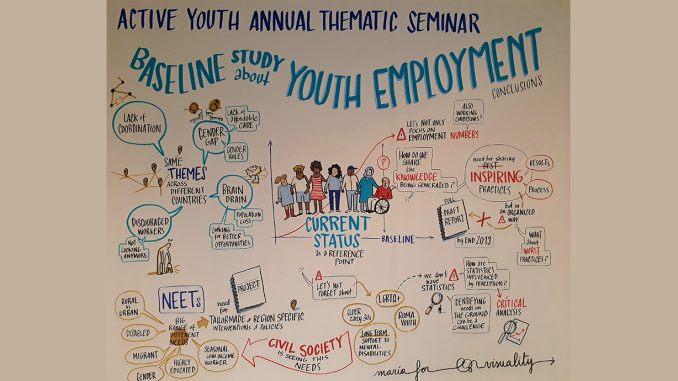 ACTIVE YOUTH ANNUAL THEMATIC SEMINAR
BASELINE STUDY about YOUTH EMPLOYMENT
CONCLUSIONS
LACK OF
COORDINATION
GENDER
GAP
LACK OF
affordable
CARE
GENDER
ROLES
SAME
THEMES
ACROSS
DIFFERENT
COUNTRIES
BRAIN
DRAIN
POPULATION
LOSS
LOOKING
FOR BETTER
OPPORTUNITIES
DISCOURAGED
WORKERS
NOT
LOOKING
ANYMORE
CURRENT
STATUS
as a REFERENCE
POINT
BASELINE
?
LET'S NOT ONLY
FOCUS on
EMPLOYMENT NUMBERS
ALSO
WORKING
CONDITIONS!
HOW DO WE
SHARE
the
KNOWLEDGE
BEING GENERATED?
need for sharing
BEST
INSPIRING
PRACTICES
RESULTS
PROCESS
DRAFT
REPORT
by END 2019
but in
an ORGANIZED
WAY
WHAT
about
WORST
PRACTICES?
NEETs
BIG
RANGE of
DIFFERENT
NEEDS
RURAL
vs
URBAN
DISABLED
MIGRANT
GENDER
HIGHLY
EDUCATED
SEASONAL
LOW INCOME
WORKER
need
for
PROJECT
TAILORMADE & REGION SPECIFIC
INTERVENTIONS & POLICIES
CIVIL SOCIETY
is SEEING THIS
NEEDS
LET'S NOT
FORGET about:
LGBTQ+
OLDER
early 30s
ROMA
YOUTH
LONG TERM
SUPPORT to
MENTAL
DISABILITIES
we don't
have
STATISTICS
HOW are
STATISTICS
INFLUENCED by
PERCEPTION?
CRITICAL
ANALYSIS
IDENTIFYING
needs on
THE GROUND
can be a
CHALLENGE
maria for visuality